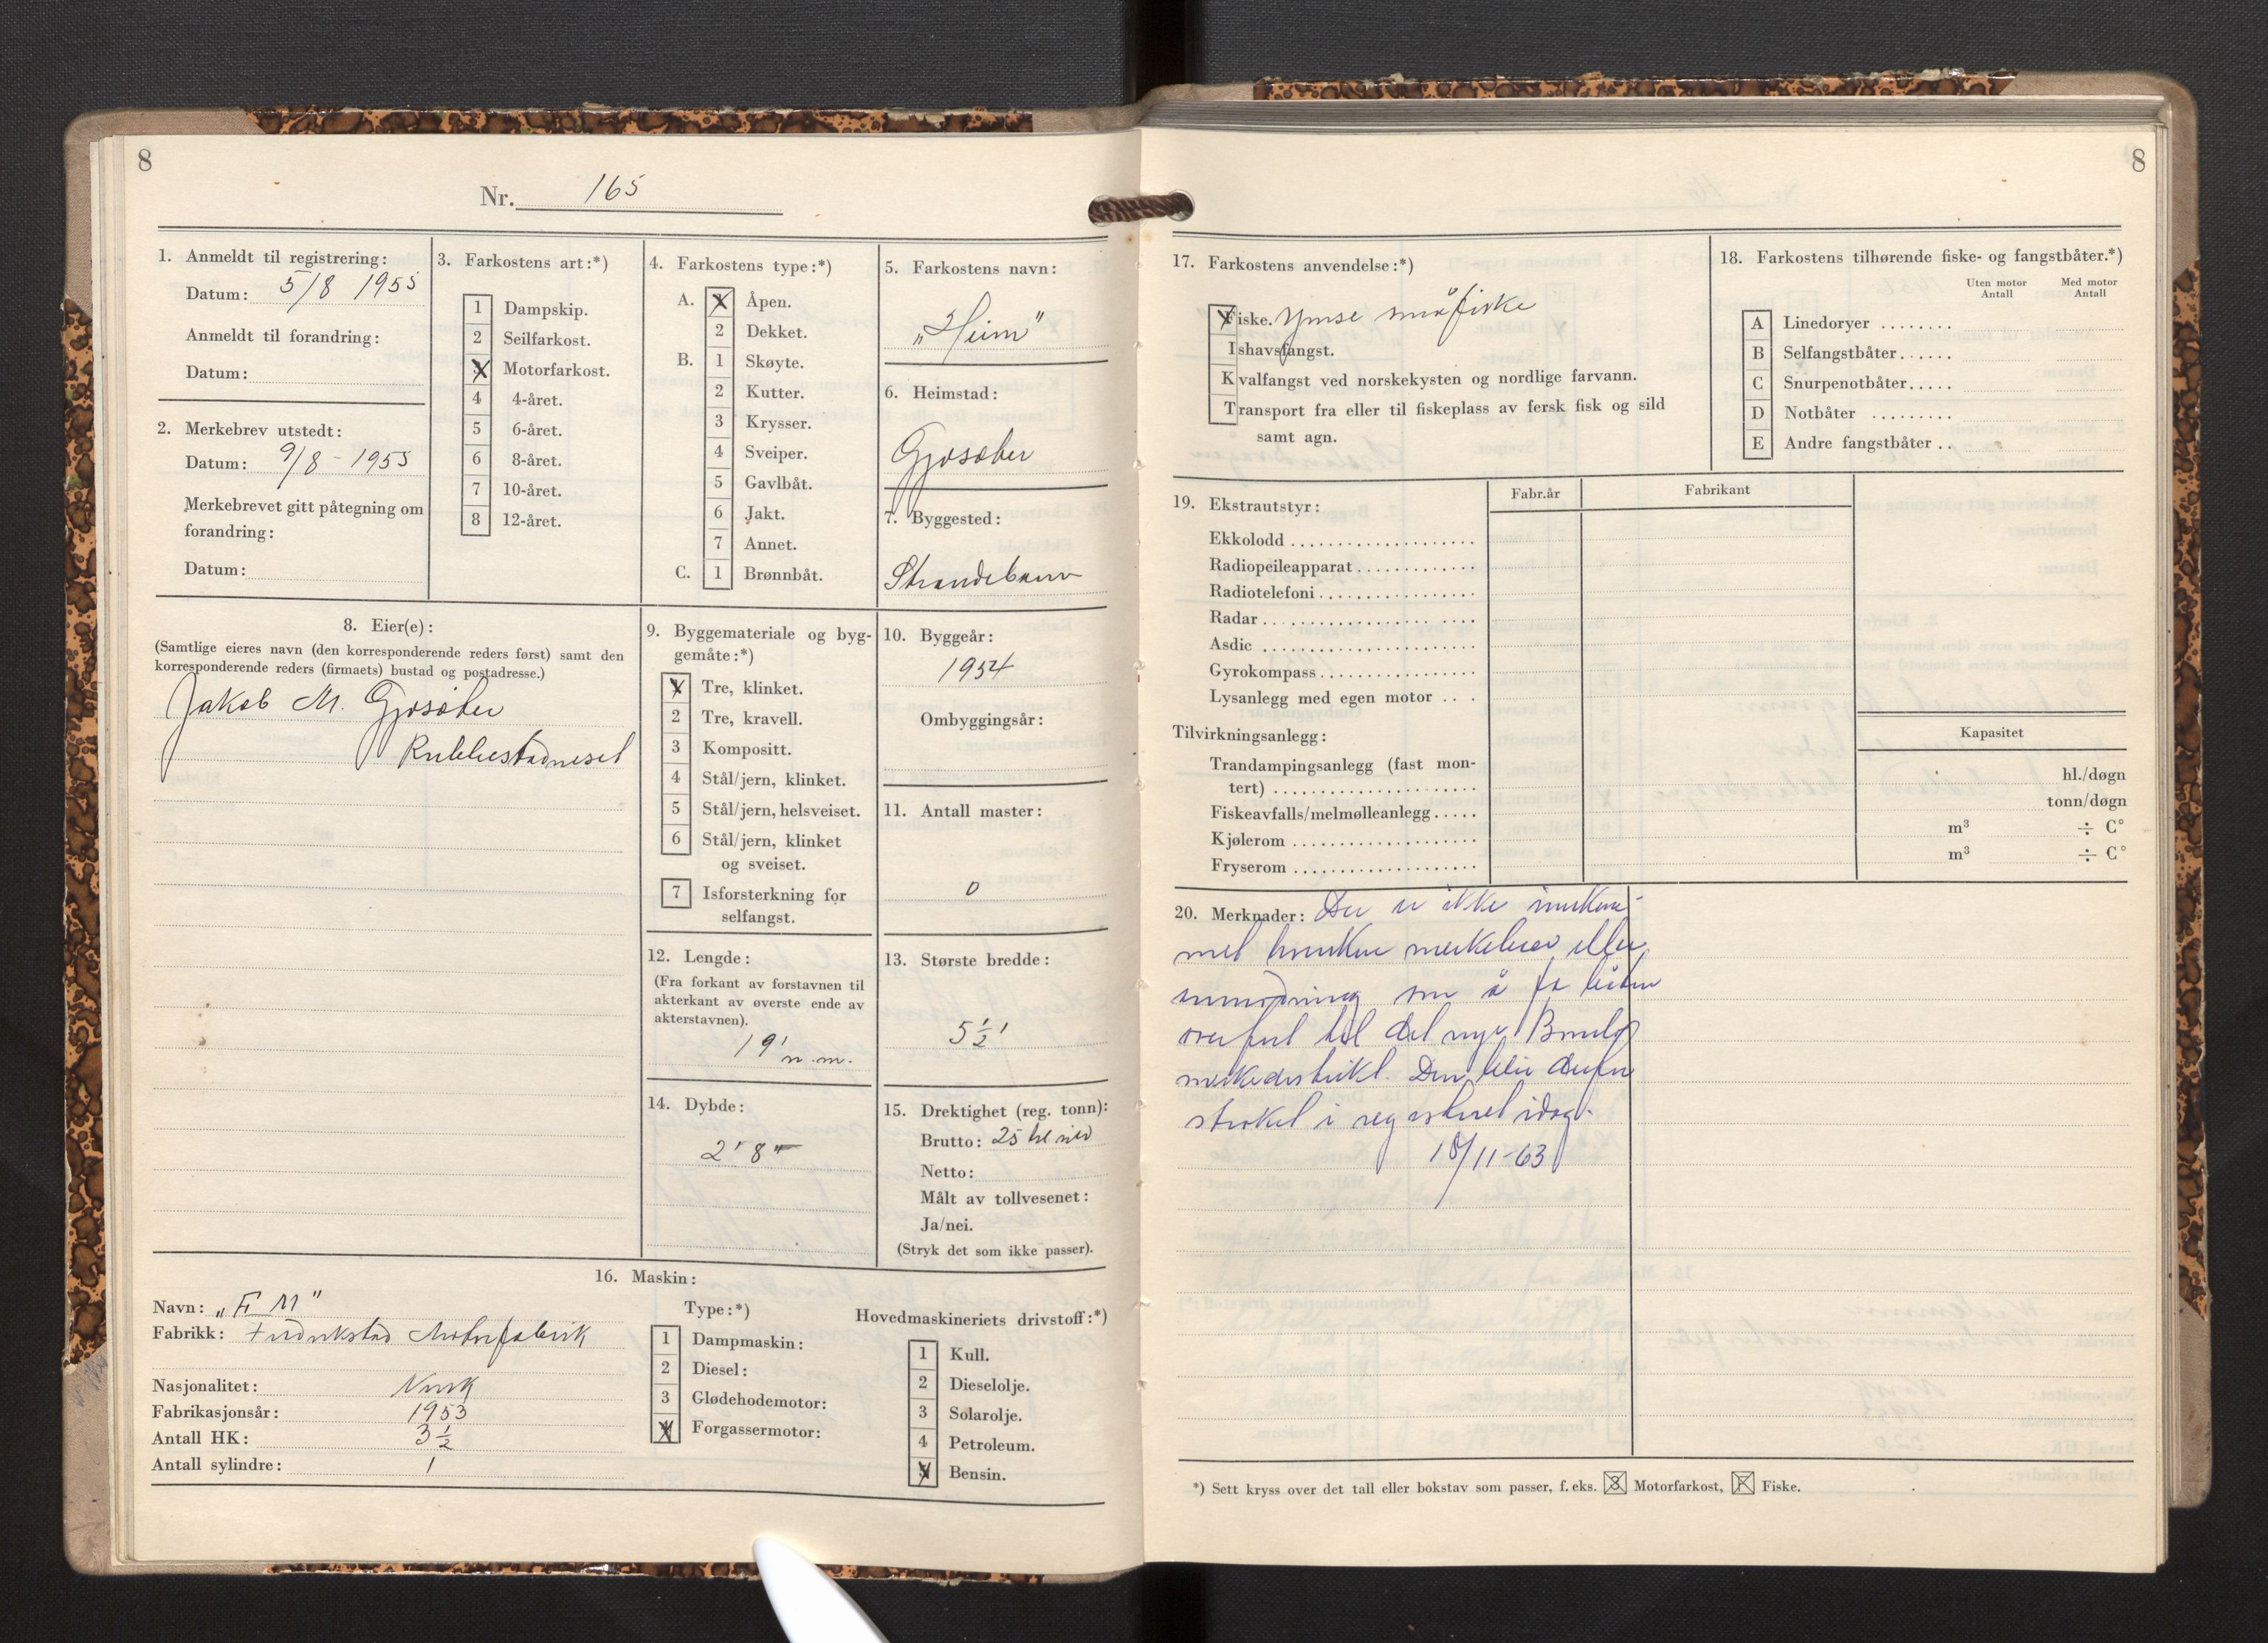 8
Nr. 165
1. Anmeldt til registrering:
Datum: 5/8 1955
Anmeldt til forandring:
Datum:
2. Merkebrev utstedt:
Datum: 9/8 - 1955
Merkebrevet gitt påtegning om
forandring:
Datum:
3. Farkostens art:*)
1 Dampskip.
2 Seilfarkost.
X Motorfarkost.
4 4-året.
5 6-året.
6 8-året.
7 10-året.
8 12-året.
4. Farkostens type:*)
A. X Åpen.
2 Dekket.
B. 1 Skøyte.
2 Kutter.
3 Krysser.
4 Sveiper.
5 Gavlbåt.
6 Jakt.
7 Annet.
C. 1 Brønnbåt.
5. Farkostens navn:
„Heim"
6. Heimstad:
Gjosæter
7. Byggested:
Strandebarm
8. Eier(e):
(Samtlige eieres navn (den korresponderende reders først) samt den
korresponderende reders (firmaets) bustad og postadresse.)
Jakob M. Gjosæter
Rubbestadneset
9. Byggemateriale og byg-
gemåte:*)
X Tre, klinket.
2 Tre, kravell.
3 Kompositt.
4 Stål/jern, klinket.
5 Stål/jern, helsveiset.
6 Stål/jern, klinket
og sveiset.
7 Isforsterkning for
selfangst.
10. Byggeår:
1954
Ombyggingsår:
11. Antall master:
0
12. Lengde:
(Fra forkant av forstavnen til
akterkant av øverste ende av
akterstavnen).
19' n.m.
13. Største bredde:
5 1/2'
14. Dybde:
2' 8"
15. Drektighet (reg. tonn):
Brutto: 25 hl sild
Netto:
Målt av tollvesenet:
Ja/nei.
(Stryk det som ikke passer).
16. Maskin:
Navn: „F M"
Fabrikk: Fredrikstad Motorfabrik
Nasjonalitet: Norsk
Fabrikasjonsår: 1953
Antall HK: 3 1/2
Antall sylindre: 1
Type:*)
1 Dampmaskin:
2 Diesel:
3 Glødehodemotor:
X Forgassermotor:
Hovedmaskineriets drivstoff:*)
1 Kull.
2 Dieselolje.
3 Solarolje.
4 Petroleum.
X Bensin.
8
17. Farkostens anvendelse:*)
Fiske. Ymse småfiske
Ishavsfangst.
Kvalfangst ved norskekysten og nordlige farvann.
Transport fra eller til fiskeplass av fersk fisk og sild
samt agn.
18. Farkostens tilhørende fiske- og fangstbåter.*)
Uten motor Med motor
Antall Antall
A Linedoryer ........
B Selfangstbåter......
C Snurpenotbåter.....
D Notbåter .........
E Andre fangstbåter ..
19. Ekstrautstyr:
Fabr.år Fabrikant
Ekkolodd
Radiopeileapparat
Radiotelefoni
Radar
Asdic
Gyrokompass
Lysanlegg med egen motor ...
Tilvirkningsanlegg:
Kapasitet
Trandampingsanlegg (fast mon-
tert) hl./døgn
Fiskeavfalls/melmølleanlegg..... tonn/døgn
Kjølerom m³ ÷ C°
Fryserom m³ ÷ C°
20. Merknader: Der er ikke innkom-
met hverken merkebrev eller
anmodning om å få båten
overført til det nye Bømlo
merkedistrikt. Den blir derfor
strøket i registeret idag.
18/11-63
*) Sett kryss over det tall eller bokstav som passer, f. eks. 3 Motorfarkost, F Fiske.